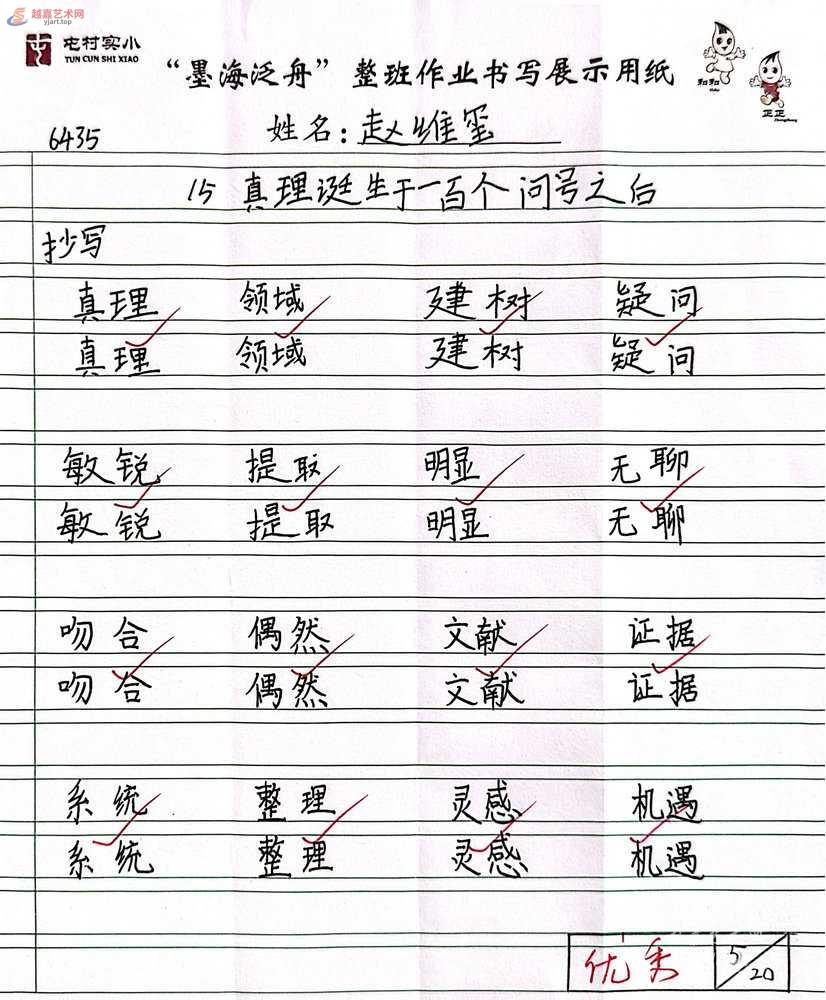 越嘉艺术网
yjart.top
屯村实小
TUN CUN SHI XIAO
“墨海泛舟”整班作业书写展示用纸
和和
正正
6435 姓名：赵维玺
15 真理诞生于一百个问号之后
抄写
真理 领域 建树 疑问
真理 领域 建树 疑问
敏锐 提取 明显 无聊
敏锐 提取 明显 无聊
吻合 偶然 文献 证据
吻合 偶然 文献 证据
系统 整理 灵感 机遇
系统 整理 灵感 机遇
优秀 5/20